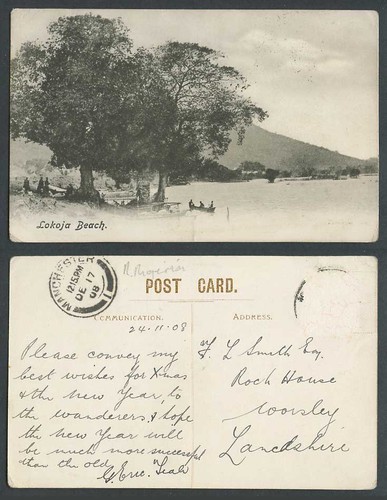 Lokoja Beach.
MANCHESTER
12.15 PM
DE 17
08
N. Nigeria
POST CARD.
COMMUNICATION.
ADDRESS.
24.11.08
Please convey my
best wishes for Xmas
& the New Year, to
the wanderers, & hope
the New Year will
be much more successful
than the old.
G. Eric.
F. L Smith Esq.
Rock House
Worsley
Lancashire